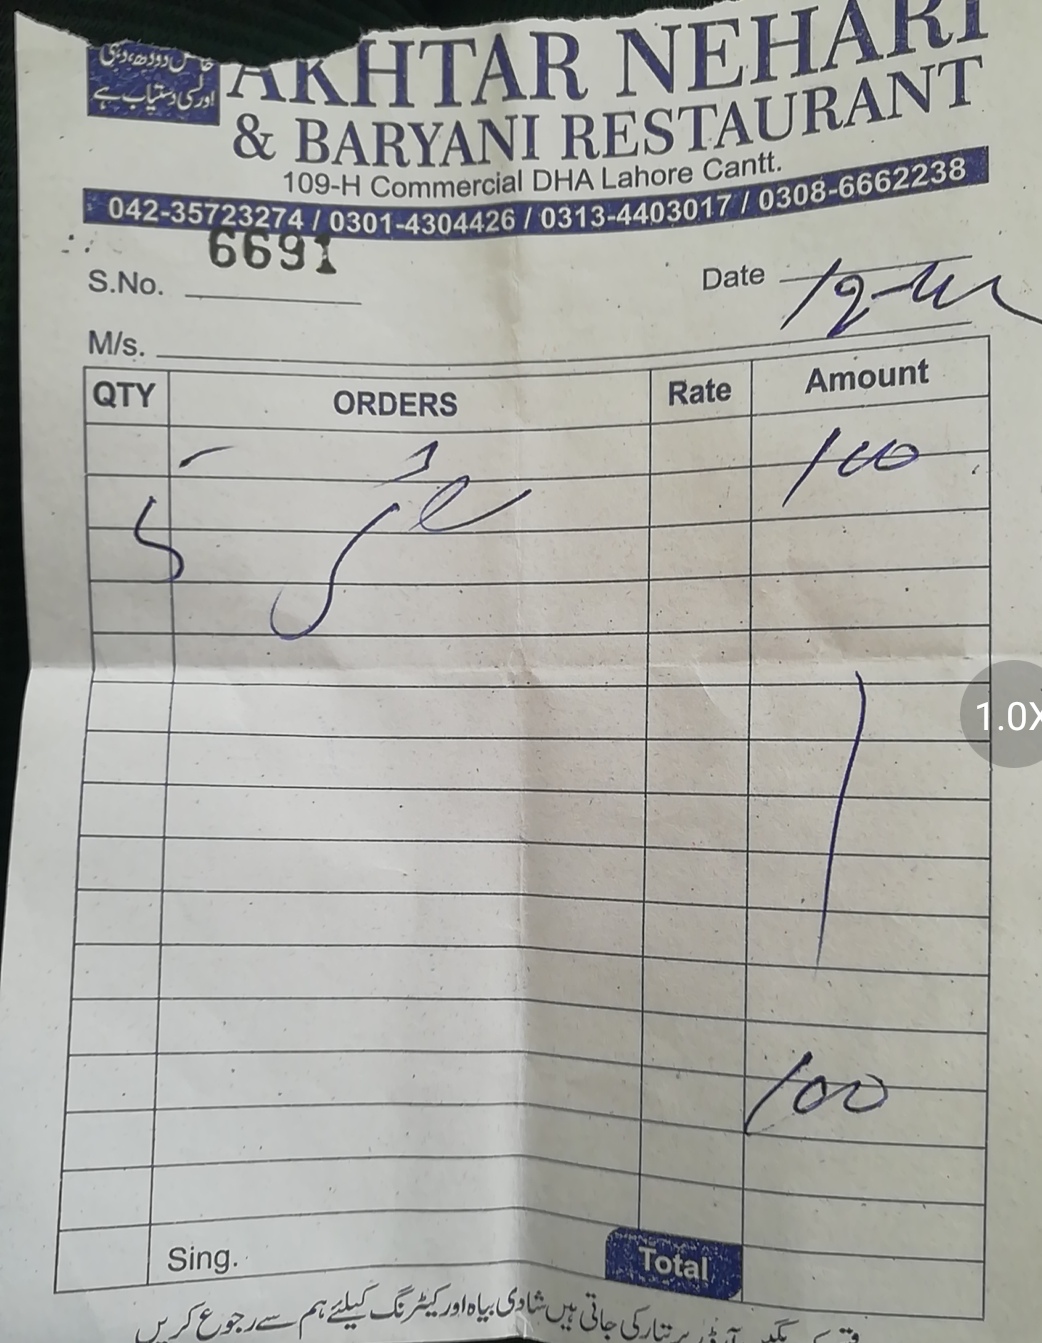 دودھ، دہی
اور لسی دستیاب ہے
AKHTAR NEHARI
& BARYANI RESTAURANT
109-H Commercial DHA Lahore Cantt.
042-35723274 / 0301-4304426 / 0313-4403017 / 0308-6662238
6691
S.No.
Date
M/s.
QTY ORDERS Rate Amount
100
5
100
Sing. Total
تیار کی جاتی ہیں شادی بیاہ اور کیٹرنگ کیلئے ہم سے رجوع کریں
1.0X